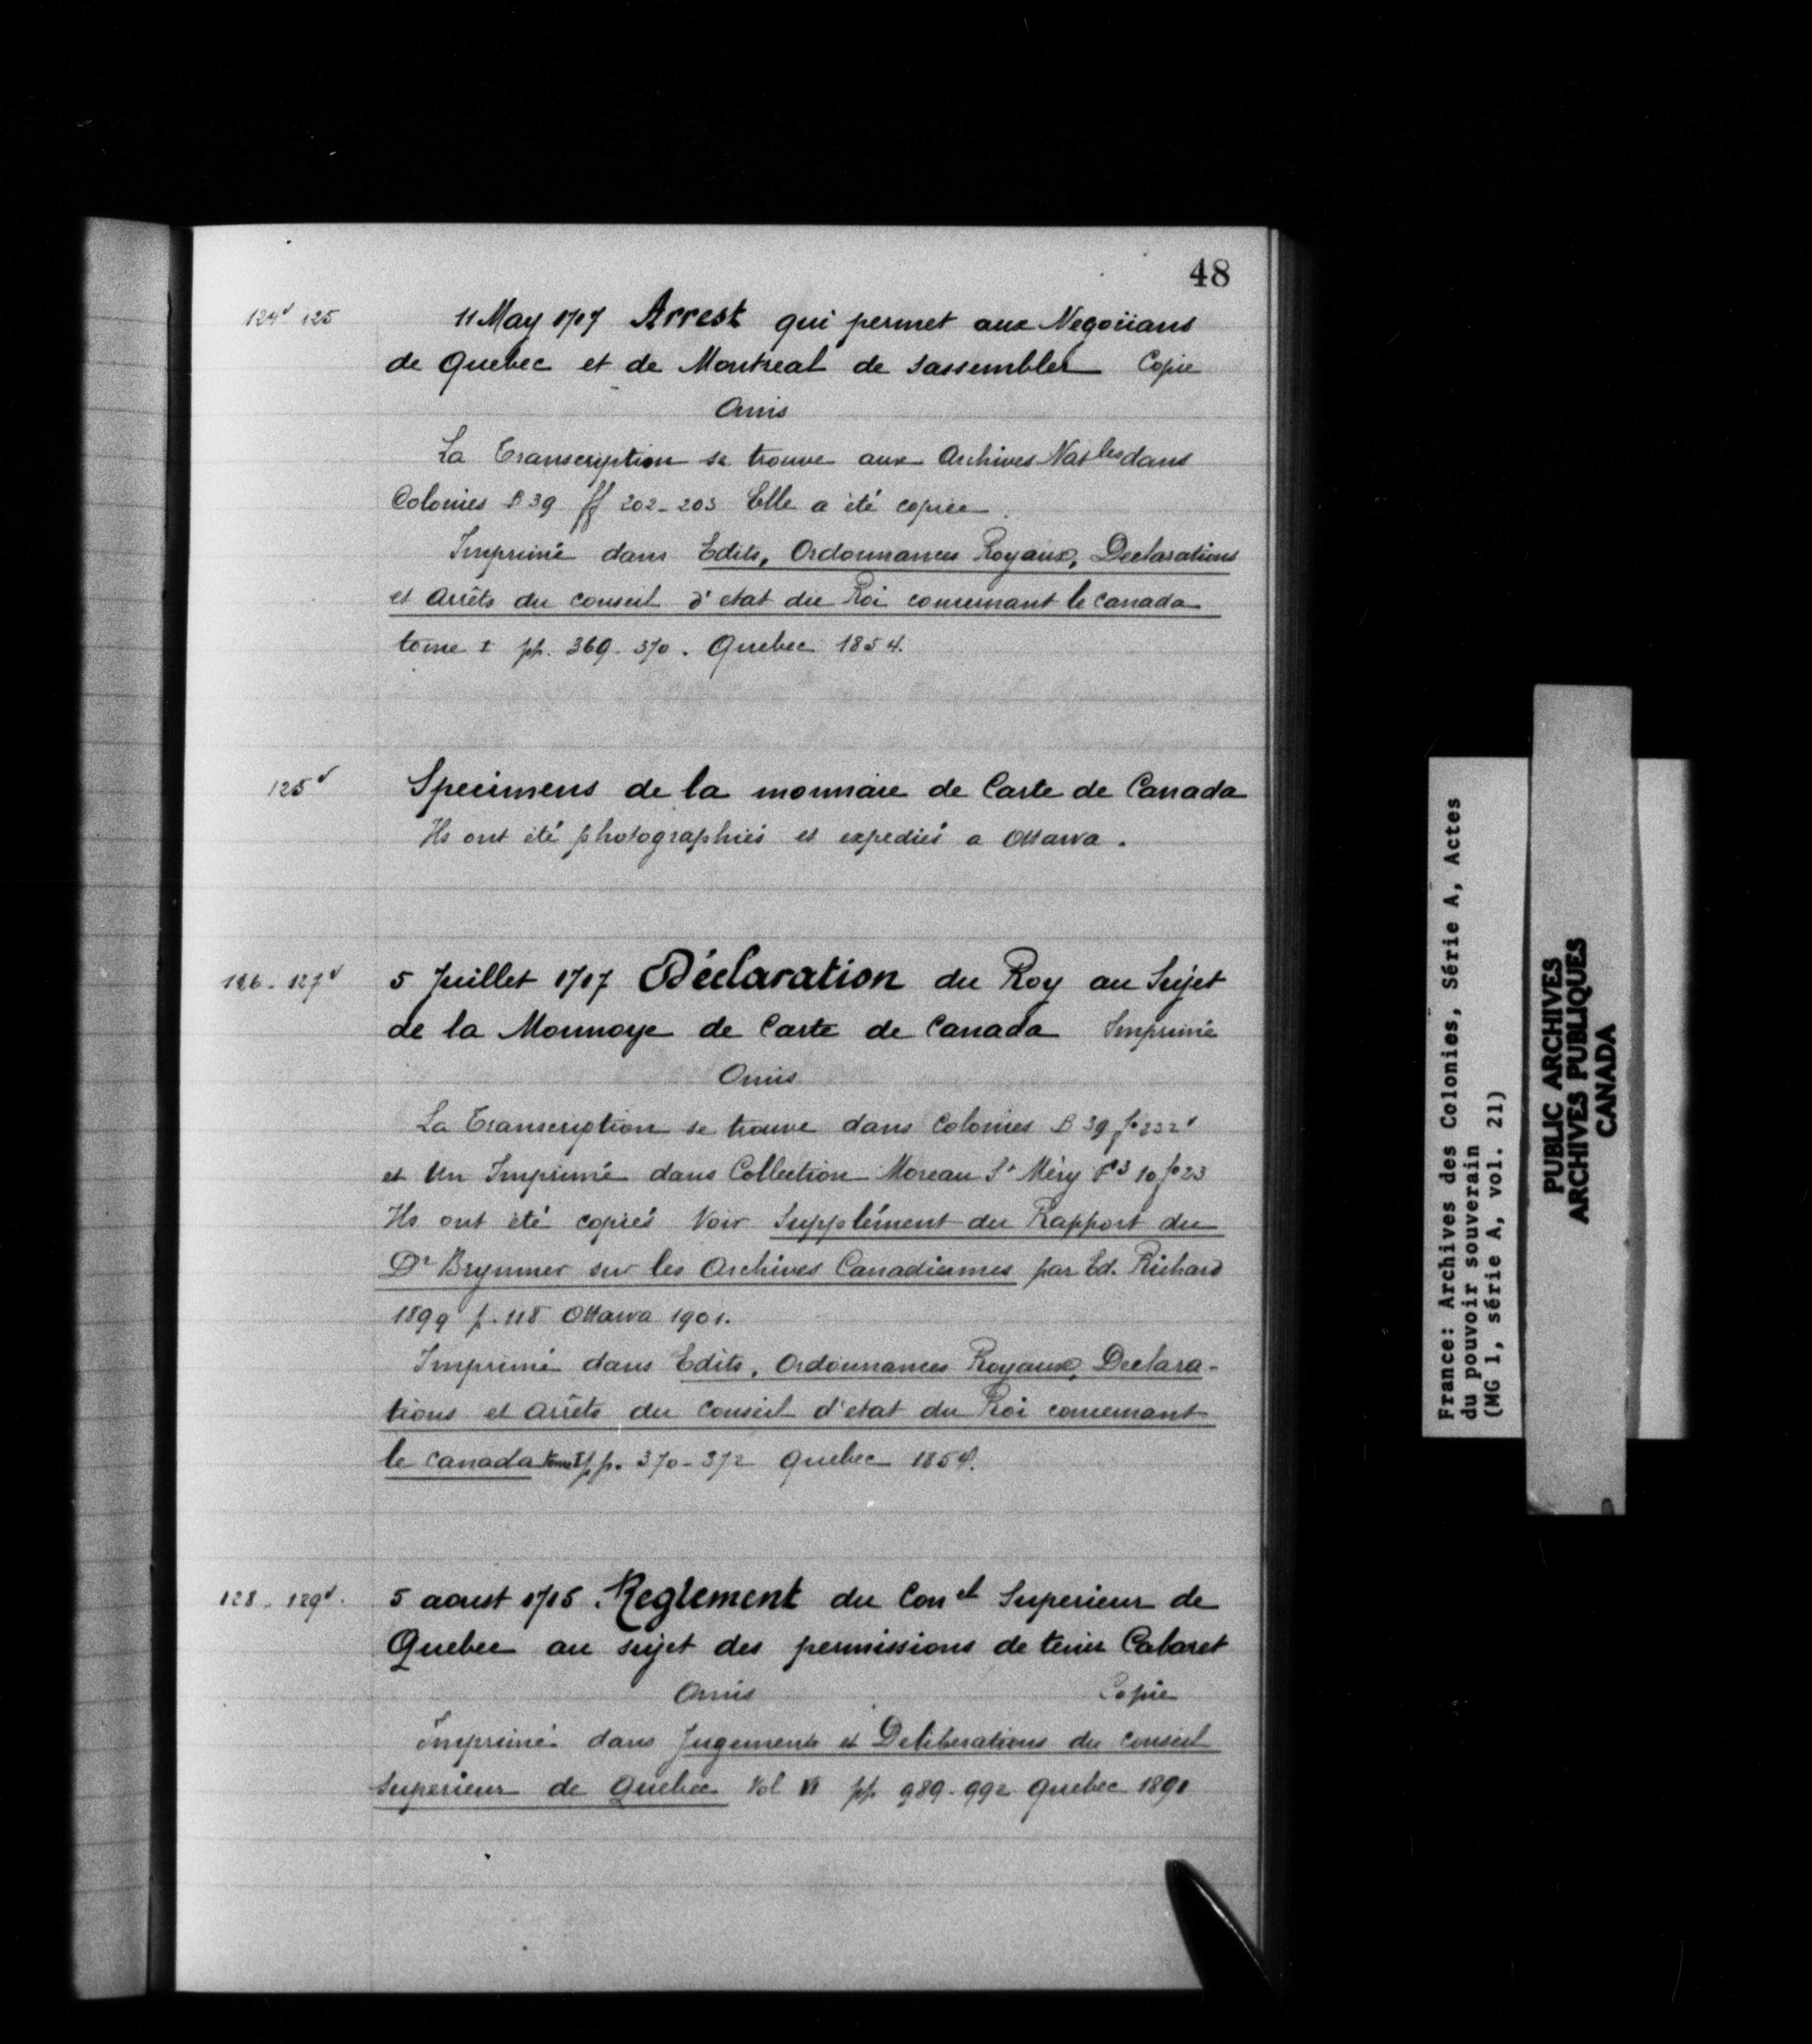 48
124v 125 11 May 1717 Arrest qui permet aux Negociians
de Quebec et de Montreal de sassembler Copie
Omis
La Transcription se trouve aux Archives Natles dans
Colonies B 39 ff 202-203 Elle a été copiée.
Imprimé dans Edits, Ordonnances Royaux, Declarations
et Arrêts du conseil d'etat du Roi concernant le Canada
tome I pp. 369-370. Quebec 1854.
125v Specimens de la monnaie de Carte de Canada
Ils ont été photographiés et expediés a Ottawa.
126-127v 5 Juillet 1717 Déclaration du Roy au Sujet
de la Monnoye de Carte de Canada Imprimé
Omis
La Transcription se trouve dans Colonies B 39 fo 232v
et Un Imprimé dans Collection Moreau St Méry F3 10 fo 23
Ils ont été copiés Voir Supplément du Rapport du
Dr Brymner sur les Archives Canadiennes par Ed. Richard
1899 p. 118 Ottawa 1901.
Imprimé dans Edits, Ordonnances Royaux, Declara-
tions et Arrêts du Conseil d'etat du Roi concernant
le Canada tome I pp. 370-372 Quebec 1854.
128-129v. 5 aoust 1715 Reglement du Conel Superieur de
Quebec au sujet des permissions de tenir Cabaret
Omis Copie
Imprimé dans Jugements et Deliberations du Conseil
Superieur de Quebec Vol VI pp 989-992 Quebec 1891
France: Archives des Colonies, Série A, Actes
du pouvoir souverain
(MG 1, série A, vol. 21)
PUBLIC ARCHIVES
ARCHIVES PUBLIQUES
CANADA